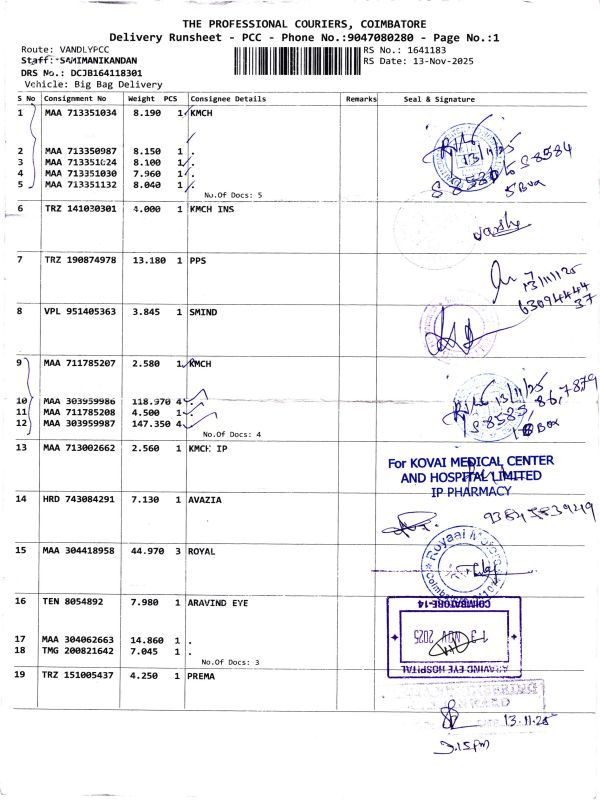 THE PROFESSIONAL COURIERS, COIMBATORE
Delivery Runsheet - PCC - Phone No.:9047080280 - Page No.:1
Route: VANDLYPCC
RS No.: 1641183
Staff: SAMIMANIKANDAN
RS Date: 13-Nov-2025
DRS No.: DCJB164118301
Vehicle: Big Bag Delivery
S No Consignment No Weight PCS Consignee Details Remarks Seal & Signature
1 MAA 713351034 8.190 1 KMCH
2 MAA 713350987 8.150 1 .
3 MAA 713351024 8.100 1 .
4 MAA 713351030 7.960 1 .
5 MAA 713351132 8.040 1 .
No.Of Docs: 5
13/11/25
5 Box
6 TRZ 141030301 4.000 1 KMCH INS
7 TRZ 190874978 13.180 1 PPS
13/11/25
63094444
37
8 VPL 951405363 3.845 1 SMIND
9 MAA 711785207 2.580 1 KMCH
10 MAA 303959986 118.970 4 .
11 MAA 711785208 4.500 1 .
12 MAA 303959987 147.350 4
No.Of Docs: 4
13/11/25
Box
13 MAA 713002662 2.560 1 KMCH IP
For KOVAI MEDICAL CENTER
AND HOSPITAL LIMITED
IP PHARMACY
14 HRD 743084291 7.130 1 AVAZIA
15 MAA 304418958 44.970 3 ROYAL
Royaal Motors
16 TEN 8054892 7.980 1 ARAVIND EYE
COIMBATORE-14
13 NOV 2025
ARAVIND EYE HOSPITAL
17 MAA 304062663 14.860 1 .
18 TMG 200821642 7.045 1 .
No.Of Docs: 3
19 TRZ 151005437 4.250 1 PREMA
13.11.25
3.15pm